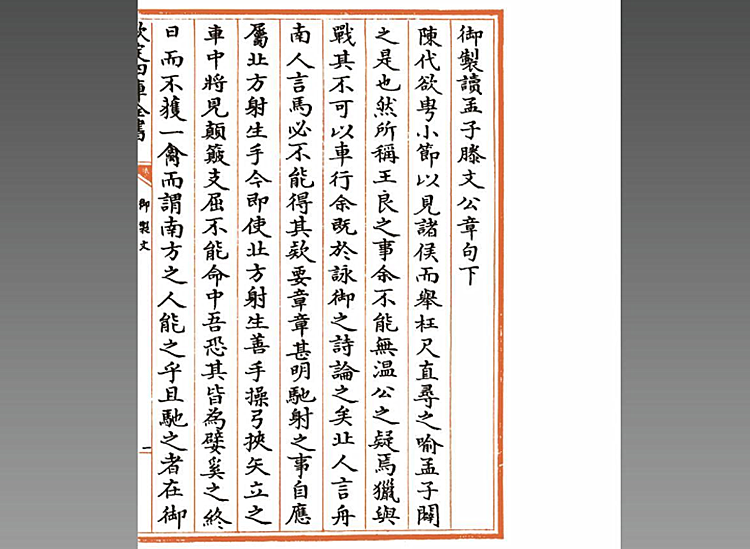 御製讀孟子滕文公章句下
陳代欲粤小節以見諸侯而舉枉尺直尋之喻孟子闢
之是也然所稱王良之事余不能無温公之疑焉獵與
戰其不可以車行余既於詠御之詩論之矣北人言舟
南人言馬必不能得其欵要章章甚明馳射之事自應
屬北方射生手今即使北方射生善手操弓挾矢立之
車中將見顛簸支屈不能命中吾恐其皆為嬖奚之終
日而不獲一禽而謂南方之人能之乎且馳之者在御
欽定四庫全書
御製文
二